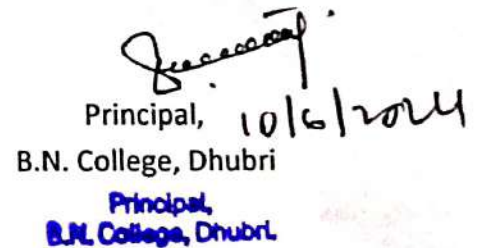 Principal, 10/6/2024
B.N. College, Dhubri
Principal,
B.N. College, Dhubri.